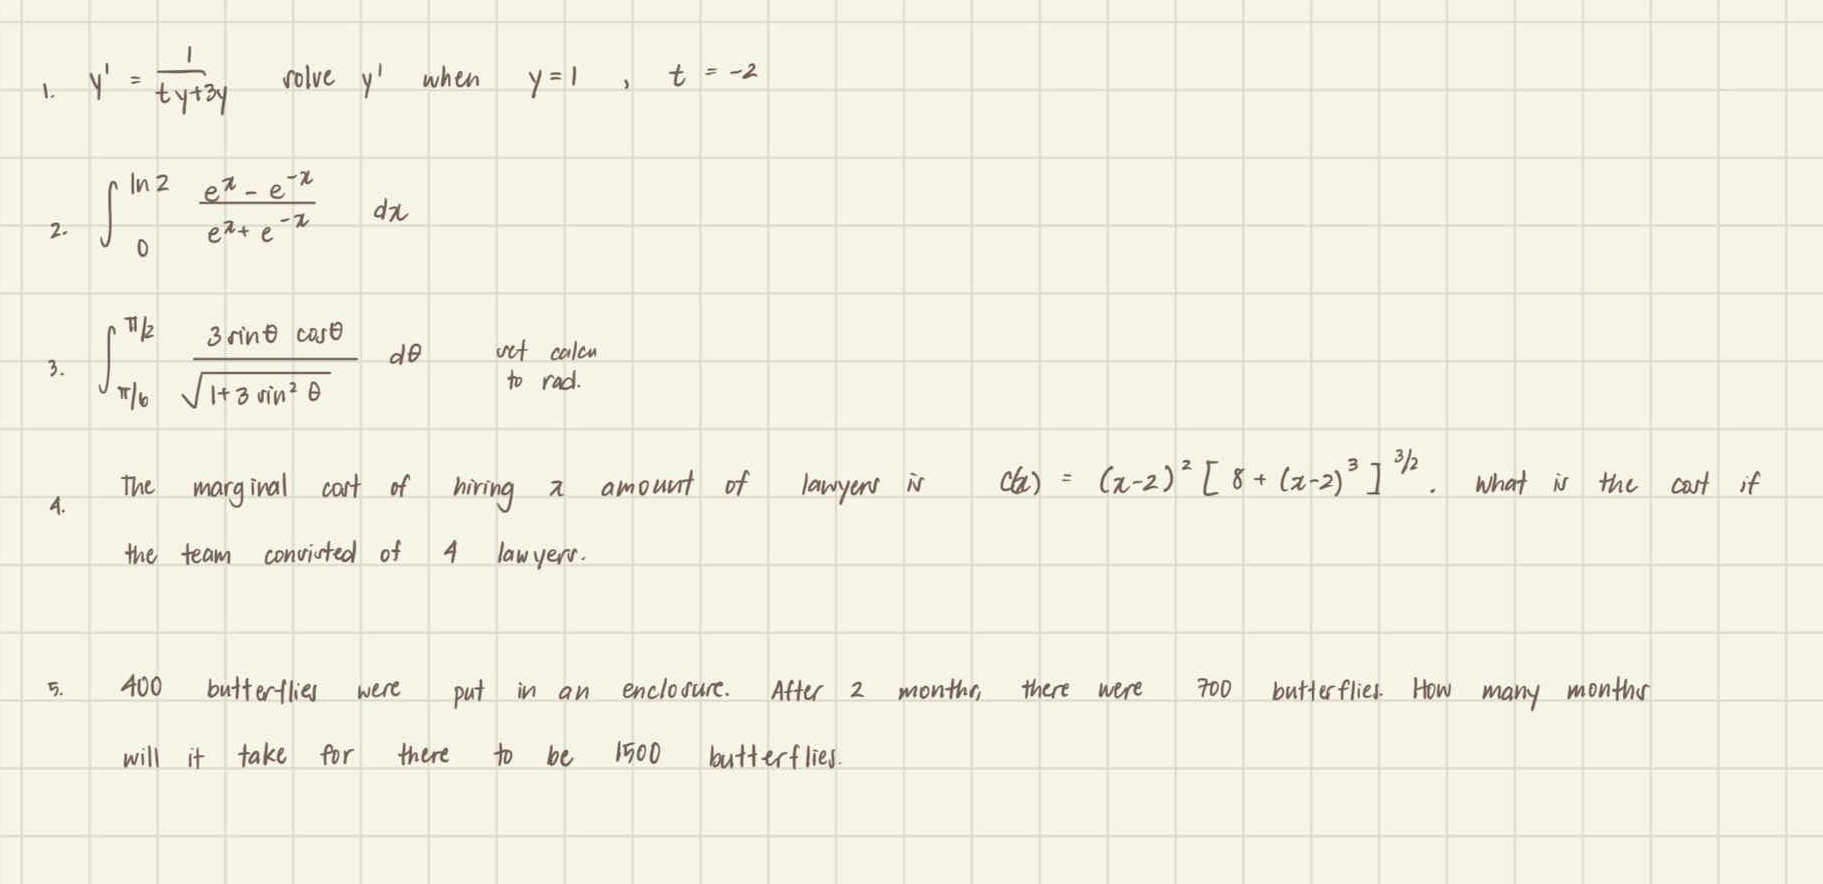 1. y' = 1/(ty+3y) solve y' when y=1 , t = -2
2. ∫_0^{ln 2} (e^x - e^{-x})/(e^x + e^{-x}) dx
3. ∫_{π/6}^{π/2} (3 sinθ cosθ)/√(1+3 sin² θ) dθ set calcu
to rad.
4. The marginal cost of hiring x amount of lawyers is C(x) = (x-2)² [8 + (x-2)³]^{3/2}. What is the cost if
the team consisted of 4 lawyers.
5. 400 butterflies were put in an enclosure. After 2 months, there were 700 butterflies. How many months
will it take for there to be 1500 butterflies.